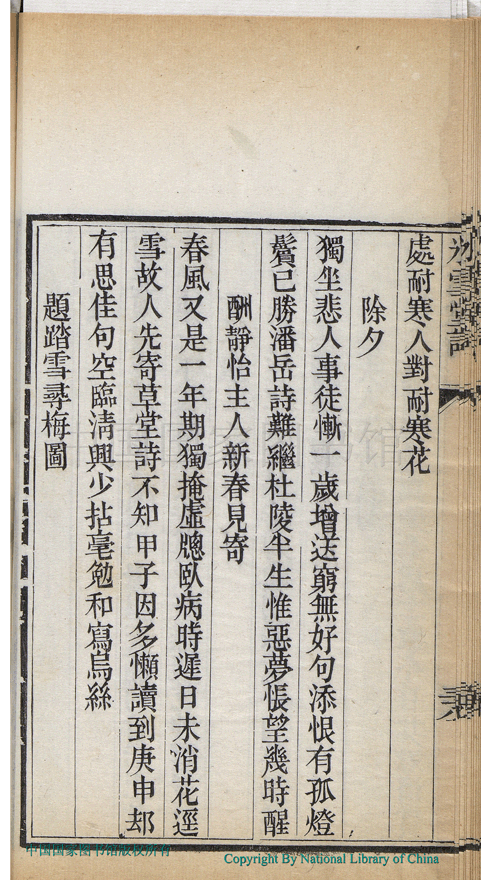 冰雪堂詩
處耐寒人對耐寒花
除夕
獨坐悲人事徒慚一歲增送窮無好句添恨有孤燈
鬢已勝潘岳詩難繼杜陵半生惟惡夢悵望幾時醒
酬靜怡主人新春見寄
春風又是一年期獨掩虛牕臥病時遲日未消花逕
雪故人先寄草堂詩不知甲子因多懶讀到庚申却
有思佳句空臨淸興少拈毫勉和寫烏絲
題踏雪尋梅圖
中国国家图书馆版权所有
Copyright By National Library of China